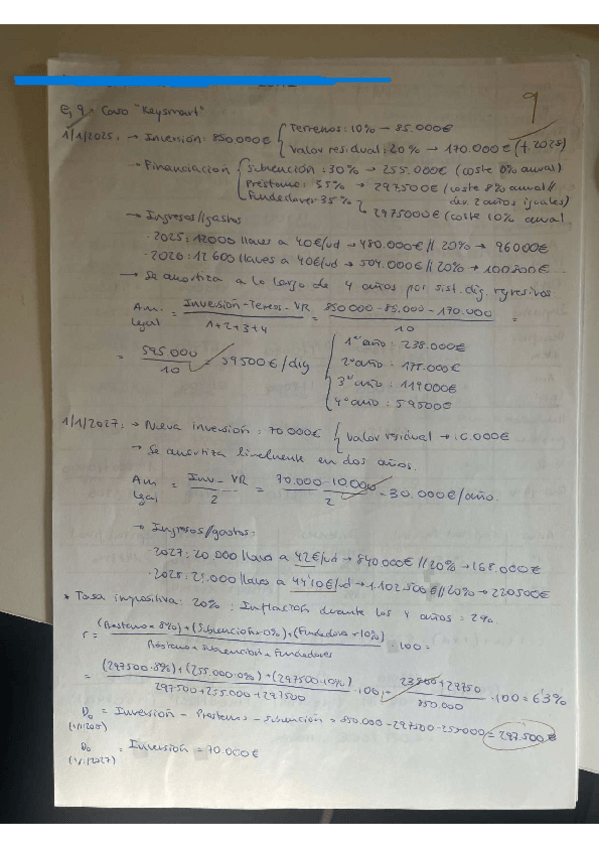 9
Ej 9. Caso "Keysmart"
1/1/2025: → Inversión: 850.000€ { Terrenos: 10% → 85.000€
Valor residual: 20% → 170.000€ (f. 2028)
→ Financiación { Subvención: 30% → 255.000€ (coste 0% anual)
Préstamo: 35% → 297500€ (coste 8% anual//
dev. 2 años iguales)
Fundadores 35% → 297500€ (coste 10% anual
→ Ingresos//gastos
· 2025: 12000 llaves a 40€/ud → 480.000€ // 20% → 96000€
· 2026: 12 600 llaves a 40€/ud → 504.000€ // 20% → 100800€
→ Se amortiza a lo largo de 4 años por sist. díg. regresivos
Am. legal = Inversión - Terrenos - VR / 1+2+3+4 = 850 000 - 85.000 - 170.000 / 10 =
= 595 000 / 10 = 59500€/díg { 1er año: 238.000€
2º año: 178.500€
3er año: 119000€
4º año: 59500€
1/1/2027: → Nueva inversión: 70.000€ { Valor residual → 10.000€
→ Se amortiza linealmente en dos años.
Am legal = Inv - VR / 2 = 70.000 - 10.000 / 2 = 30.000€/año.
→ Ingresos/gastos:
· 2027: 20 000 llaves a 42€/ud → 840.000€ // 20% → 168.000€
· 2028: 25.000 llaves a 44'10€/ud → 1.102.500€ // 20% → 220500€
* Tasa impositiva: 20% ; Inflación durante los 4 años: 2%.
r = (Préstamo · 8%) + (Subvención · 0%) + (Fundadores · 10%) / Préstamo + Subvención + Fundadores · 100 =
= (297500·8%) + (255.000·0%) + (297500·10%) / 297.500 + 255.000 + 297500 · 100 = 23800 + 29750 / 850.000 · 100 = 6'3%
D0 (1/1/2025) = Inversión - Préstamo - Subvención = 850.000 - 297.500 - 255.000 = 297.500€
D0 (1/1/2027) = Inversión = 70.000€